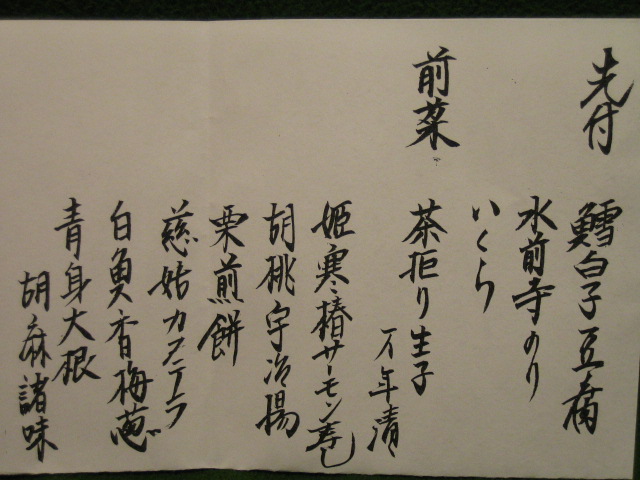 先付
鱈白子豆腐
水前寺のり
いくら
前菜
茶拒り生子
万年清
姫寒椿サーモン寿し
胡桃宇治揚
栗煎餅
慈姑カステラ
白魚香梅葱
青身大根
胡麻諸味